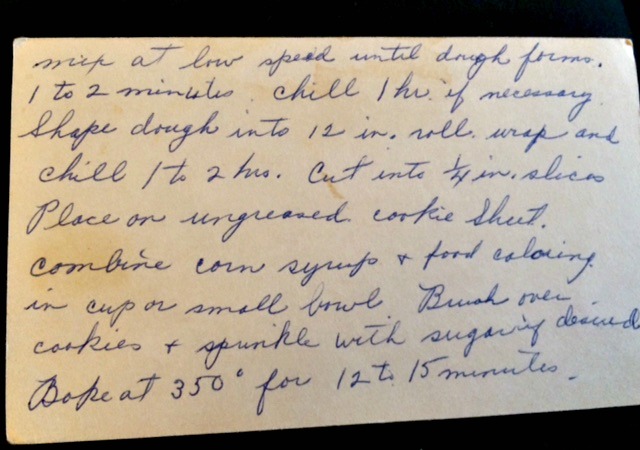 mix at low speed until dough forms.
1 to 2 minutes. Chill 1 hr. if necessary.
Shape dough into 12 in. roll. wrap and
chill 1 to 2 hrs. Cut into 1/4 in. slices
Place on ungreased cookie sheet.
Combine corn syrup + food coloring
in cup or small bowl. Brush over
cookies + sprinkle with sugar if desired
Bake at 350° for 12 to 15 minutes.